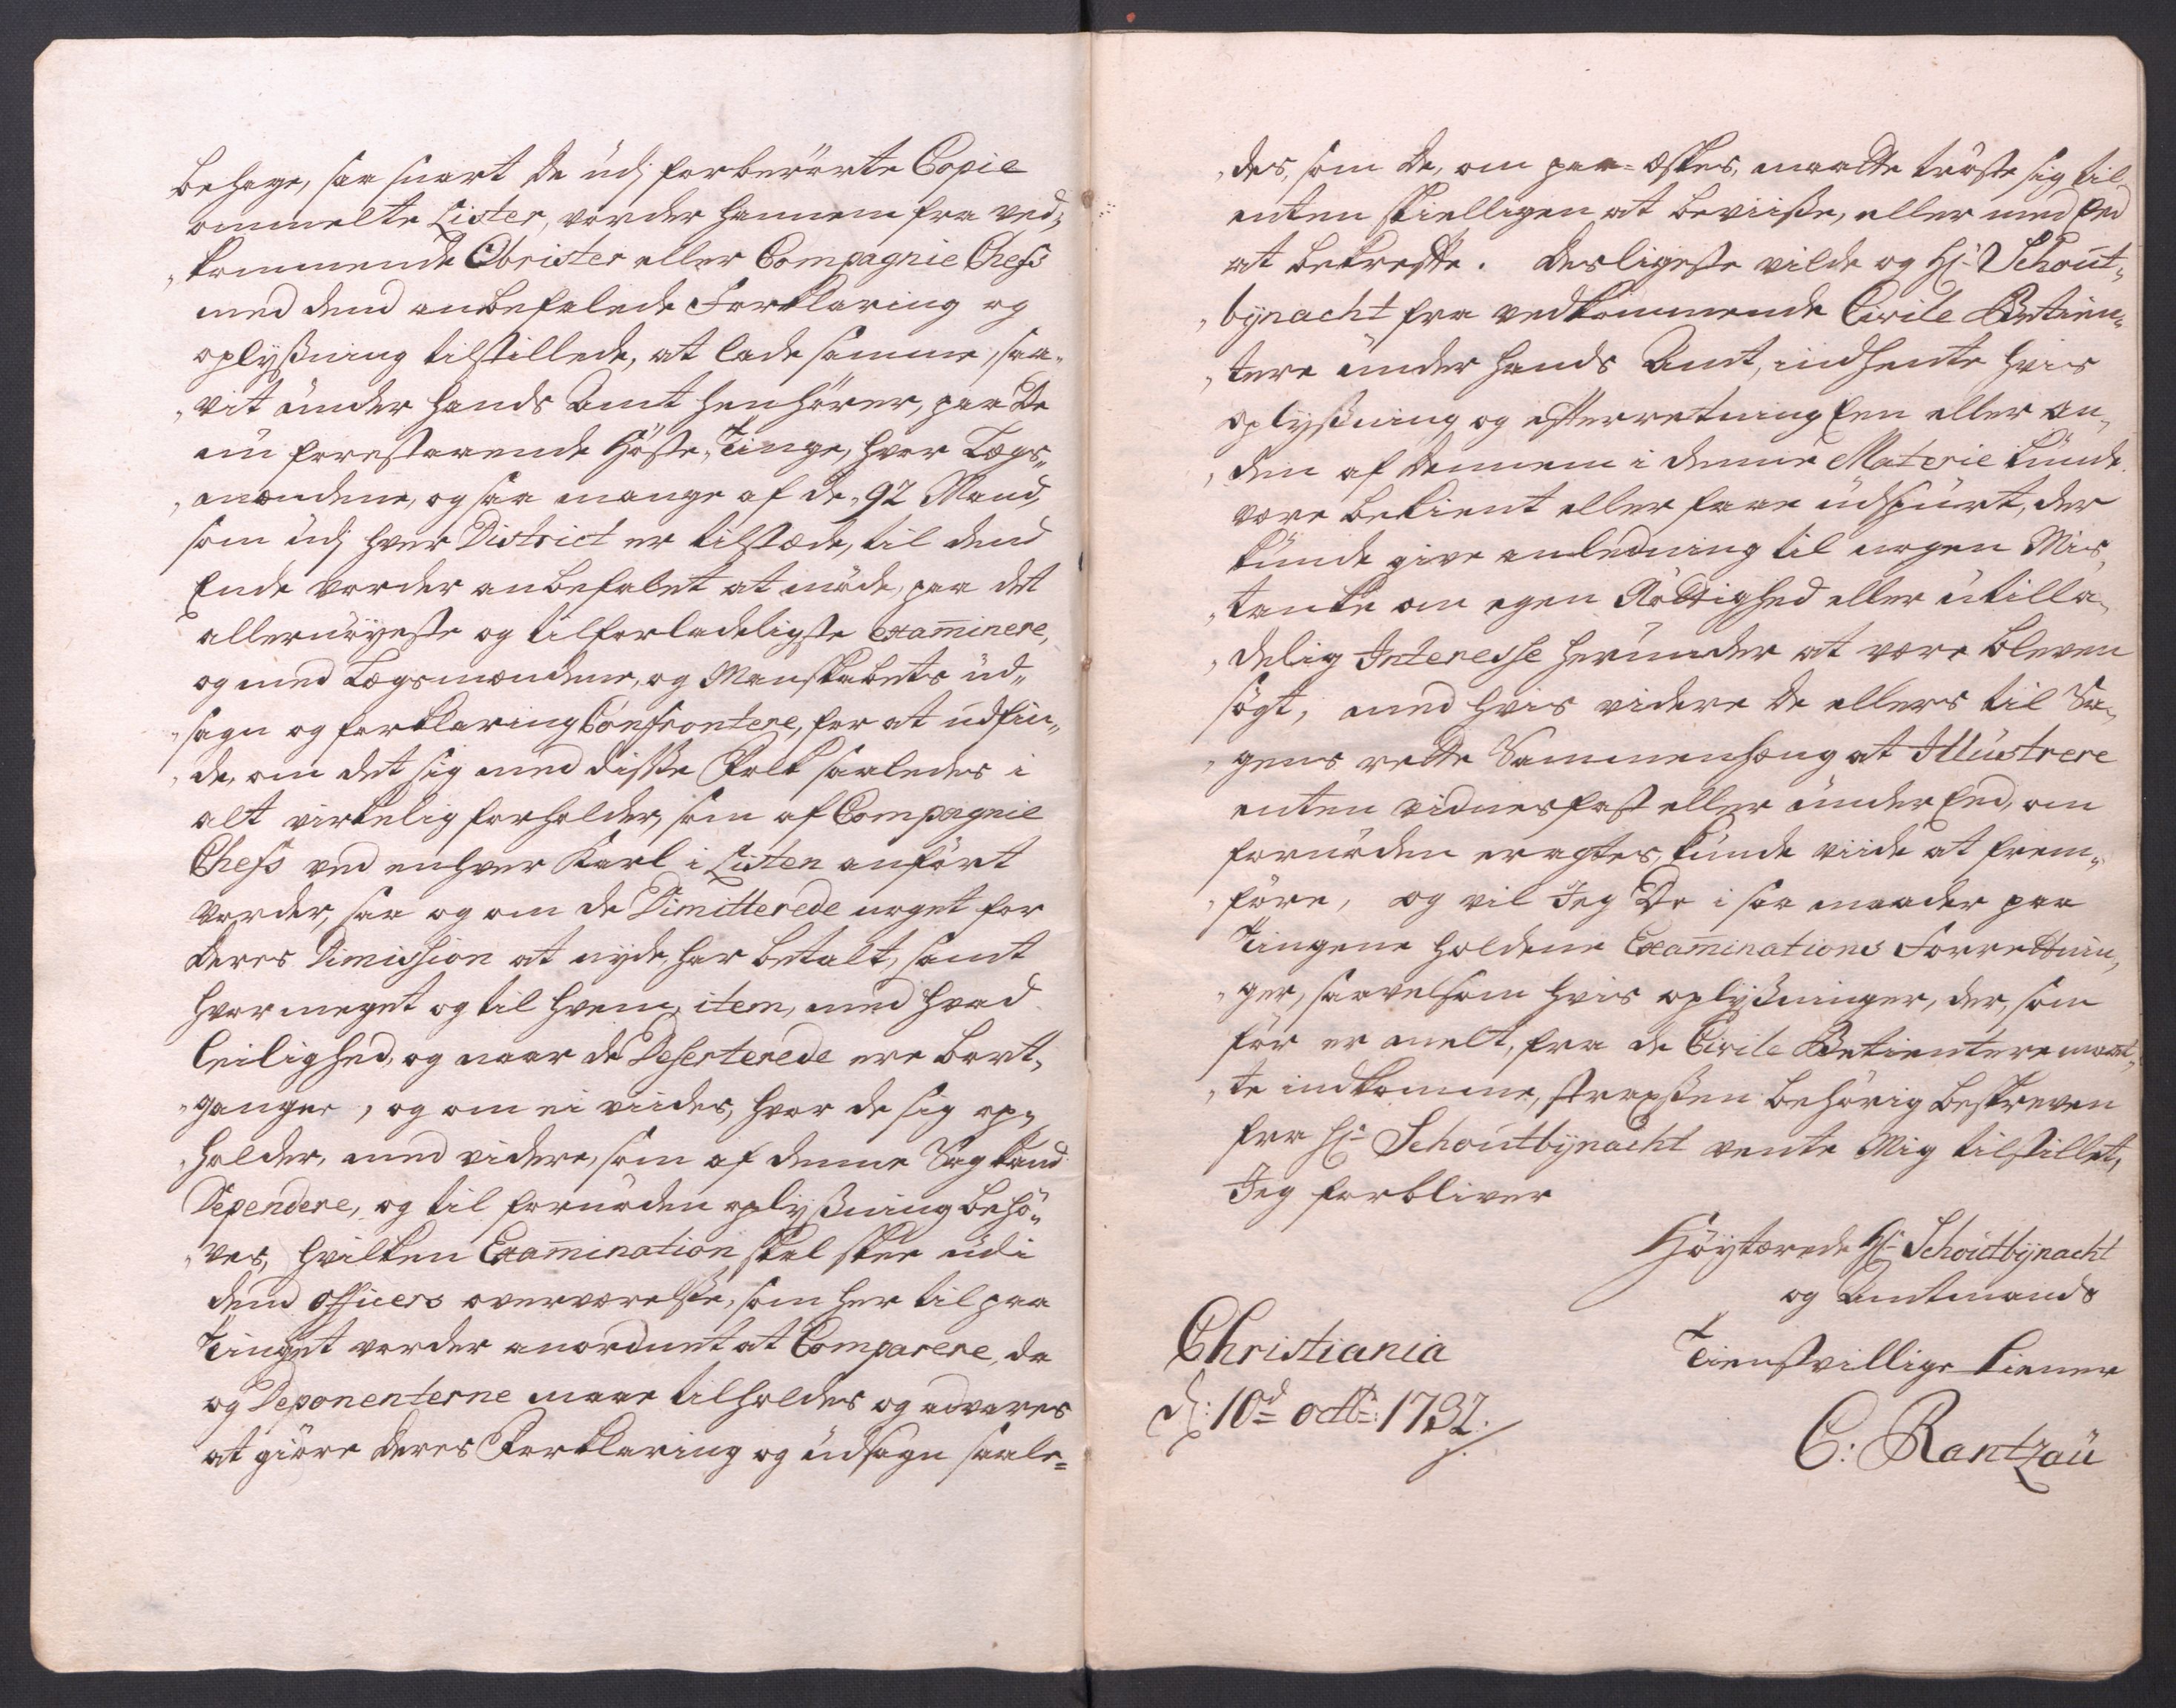 behage, saa snart de udj forberörte Copie
ommelte Lister, vorder hannem fra ved,,
,,kommende Obrister eller Compagnie Chefs
med dend anbefalede Forklaring og
oplyßning tilstillede, at lade samme, saa,,
,,vit under hands Amt henhörer, paa de
nu forestaaende Höste,,Tinge, hvor Lægs,,
,,mændene, og saa mange af de 97 Mand,
som udj hver District er tilstæde, til dend
Ende vorder anbefalet at möde, paa det
allernöyeste og tilforladeligste examinere,
og med Lægsmændene, og Mandskabets ud,,
,,sagn og forklaring Confrontere, for at udfin,,
,,de, om det sig med disse Folk saaledes i
alt virkelig forholder, som af Compagnie
Chefs ved enhver Karl i Listen anfört
vorder, saa og om de Dimitterede noget for
deres Dimission at nyde, har betalt, samt
hvor meget og til hvem, item, med hvad
leilighed, og naar de Deserterede ere bort,,
,,ganger, og om ei viides, hvor de sig op,,
,,holder, med videre, som af denne Sag kand
Dependere, og til fornöden oplyßning behö,,
,,ves, hvilken Examination skal skee udi
dend Officers overværelse, som her til paa
Tinget vorder anordnet at Comparere, da
og Deponenterne maae tilholdes og advares
at giöre deres Forklaring og udsagn saale=
,,des, som de, om paa=æskes, maatte tröste sig til
enten skielligen at beviiße, eller med Eed
at bekreffte. Desligeste vilde og Hr Schout,,
,,bÿnacht fra vedkommende Civile Betien,,
,,tere under hands Amt, indhente hvis
oplyßning og efterretning Een eller an,,
,,den af dennem i denne Materie kunde
være bekient eller faae udspurt, der
kunde give anledning til nogen Mis,,
,,tanke om egen Nöttighed eller utilla,,
,,delig Interesse herunder at være bleven
sögt, med hvis videre de ellers til Sa,,
,,gens rette Sammenhæng at Illustrere
enten vidnesfast eller under Eed, om
fornöden eragtes, kunde viide at frem,,
,,före, og vil Jeg de i saa maader paa
Tingene holdene Examinations Forretnin,,
,,ger, saavelsom hvis oplyßninger, der, som
för er melt, fra de Civile Betientere maat,,
,,te indkomme, strapßen behörig beskreven
fra Hr Schoutbÿnacht vente Mig tilstillet,
Jeg forbliver
Höÿtærede Hr Schoutbÿnacht
og Amtmands
Tienstvillige tiener
C: Rantzau
Christiania
d: 10d octbr: 1732.